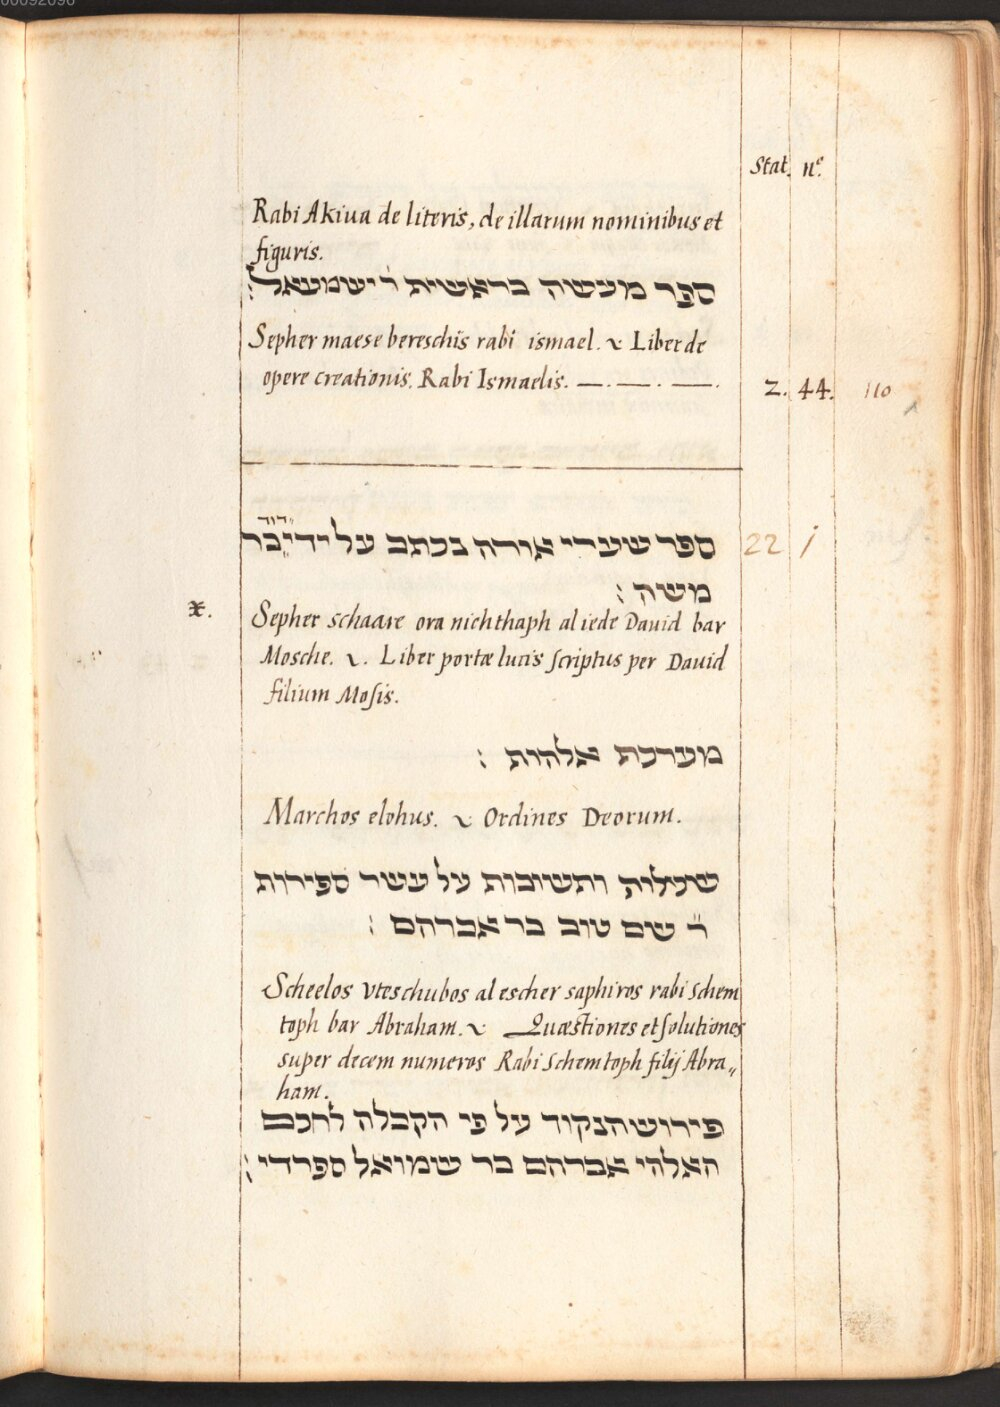 00092096
Stat. nº.
Rabi Akiua de literis, de illarum nominibus et
figuris.
ספר מעשיה בראשית ר׳ ישמעאל:
Sepher maese bereschis rabi ismael. ~ Liber de
opere creationis. Rabi Ismaelis. —. —. —. 2. 44. 110
דוד
ספר שערי אורה נכתב על ידי בר 22 1
משה :
x. Sepher schaare ora nichthaph al iede Dauid bar
Mosche. ~. Liber portæ lucis scriptus per Dauid
filium Mosis.
מערכת אלהות :
Marchos elohus. ~ Ordines Deorum.
שאלות ותשובות על עשר ספירות
ר׳ שם טוב בר אברהם :
Scheelos vteschubos al escher saphiros rabi Schem
toph bar Abraham. ~ Quæstiones et solutiones
super decem numeros Rabi Schemtoph filij Abra„
ham.
פירוש הנקוד על פי הקבלה לחכם
האלהי אברהם בר שמואל ספרדי :